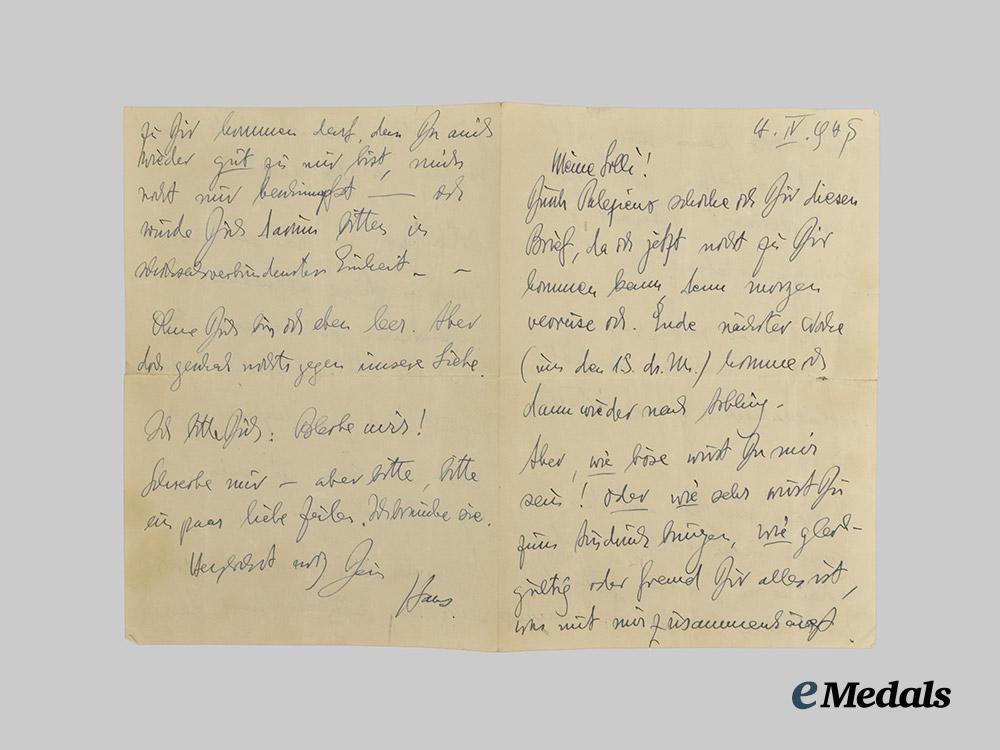 4. IV. 1945
Meine Lolli!
Durch schicke ich Dir diesen
Brief, da ich jetzt nicht zu Dir
kommen kann, denn morgen
verreise ich. Ende nächster Woche
(um den 15. ds. Mts.) komme ich
dann wieder nach
Aber, wie böse wirst Du mir
sein! Oder wie sehr wirst Du
zum Ausdruck bringen, wie gleich-
gültig oder fremd Dir alles ist,
was mit mir zusammenhängt.
zu Dir kommen darf, dem Du auch
wieder gut zu mir bist, mich
nicht nur beschimpfst — ich
würde Dich darum bitten in
schicksalsverbundenster Einheit — —
Ohne Dich bin ich eben leer. Aber
doch geschah nichts gegen unsere Liebe.
Ich bitte Dich: Bleibe mir!
Schreibe mir — aber bitte, bitte
ein paar liebe Zeilen. Ich brauche sie.
Herzlichst Dein
Hans.
eMedals